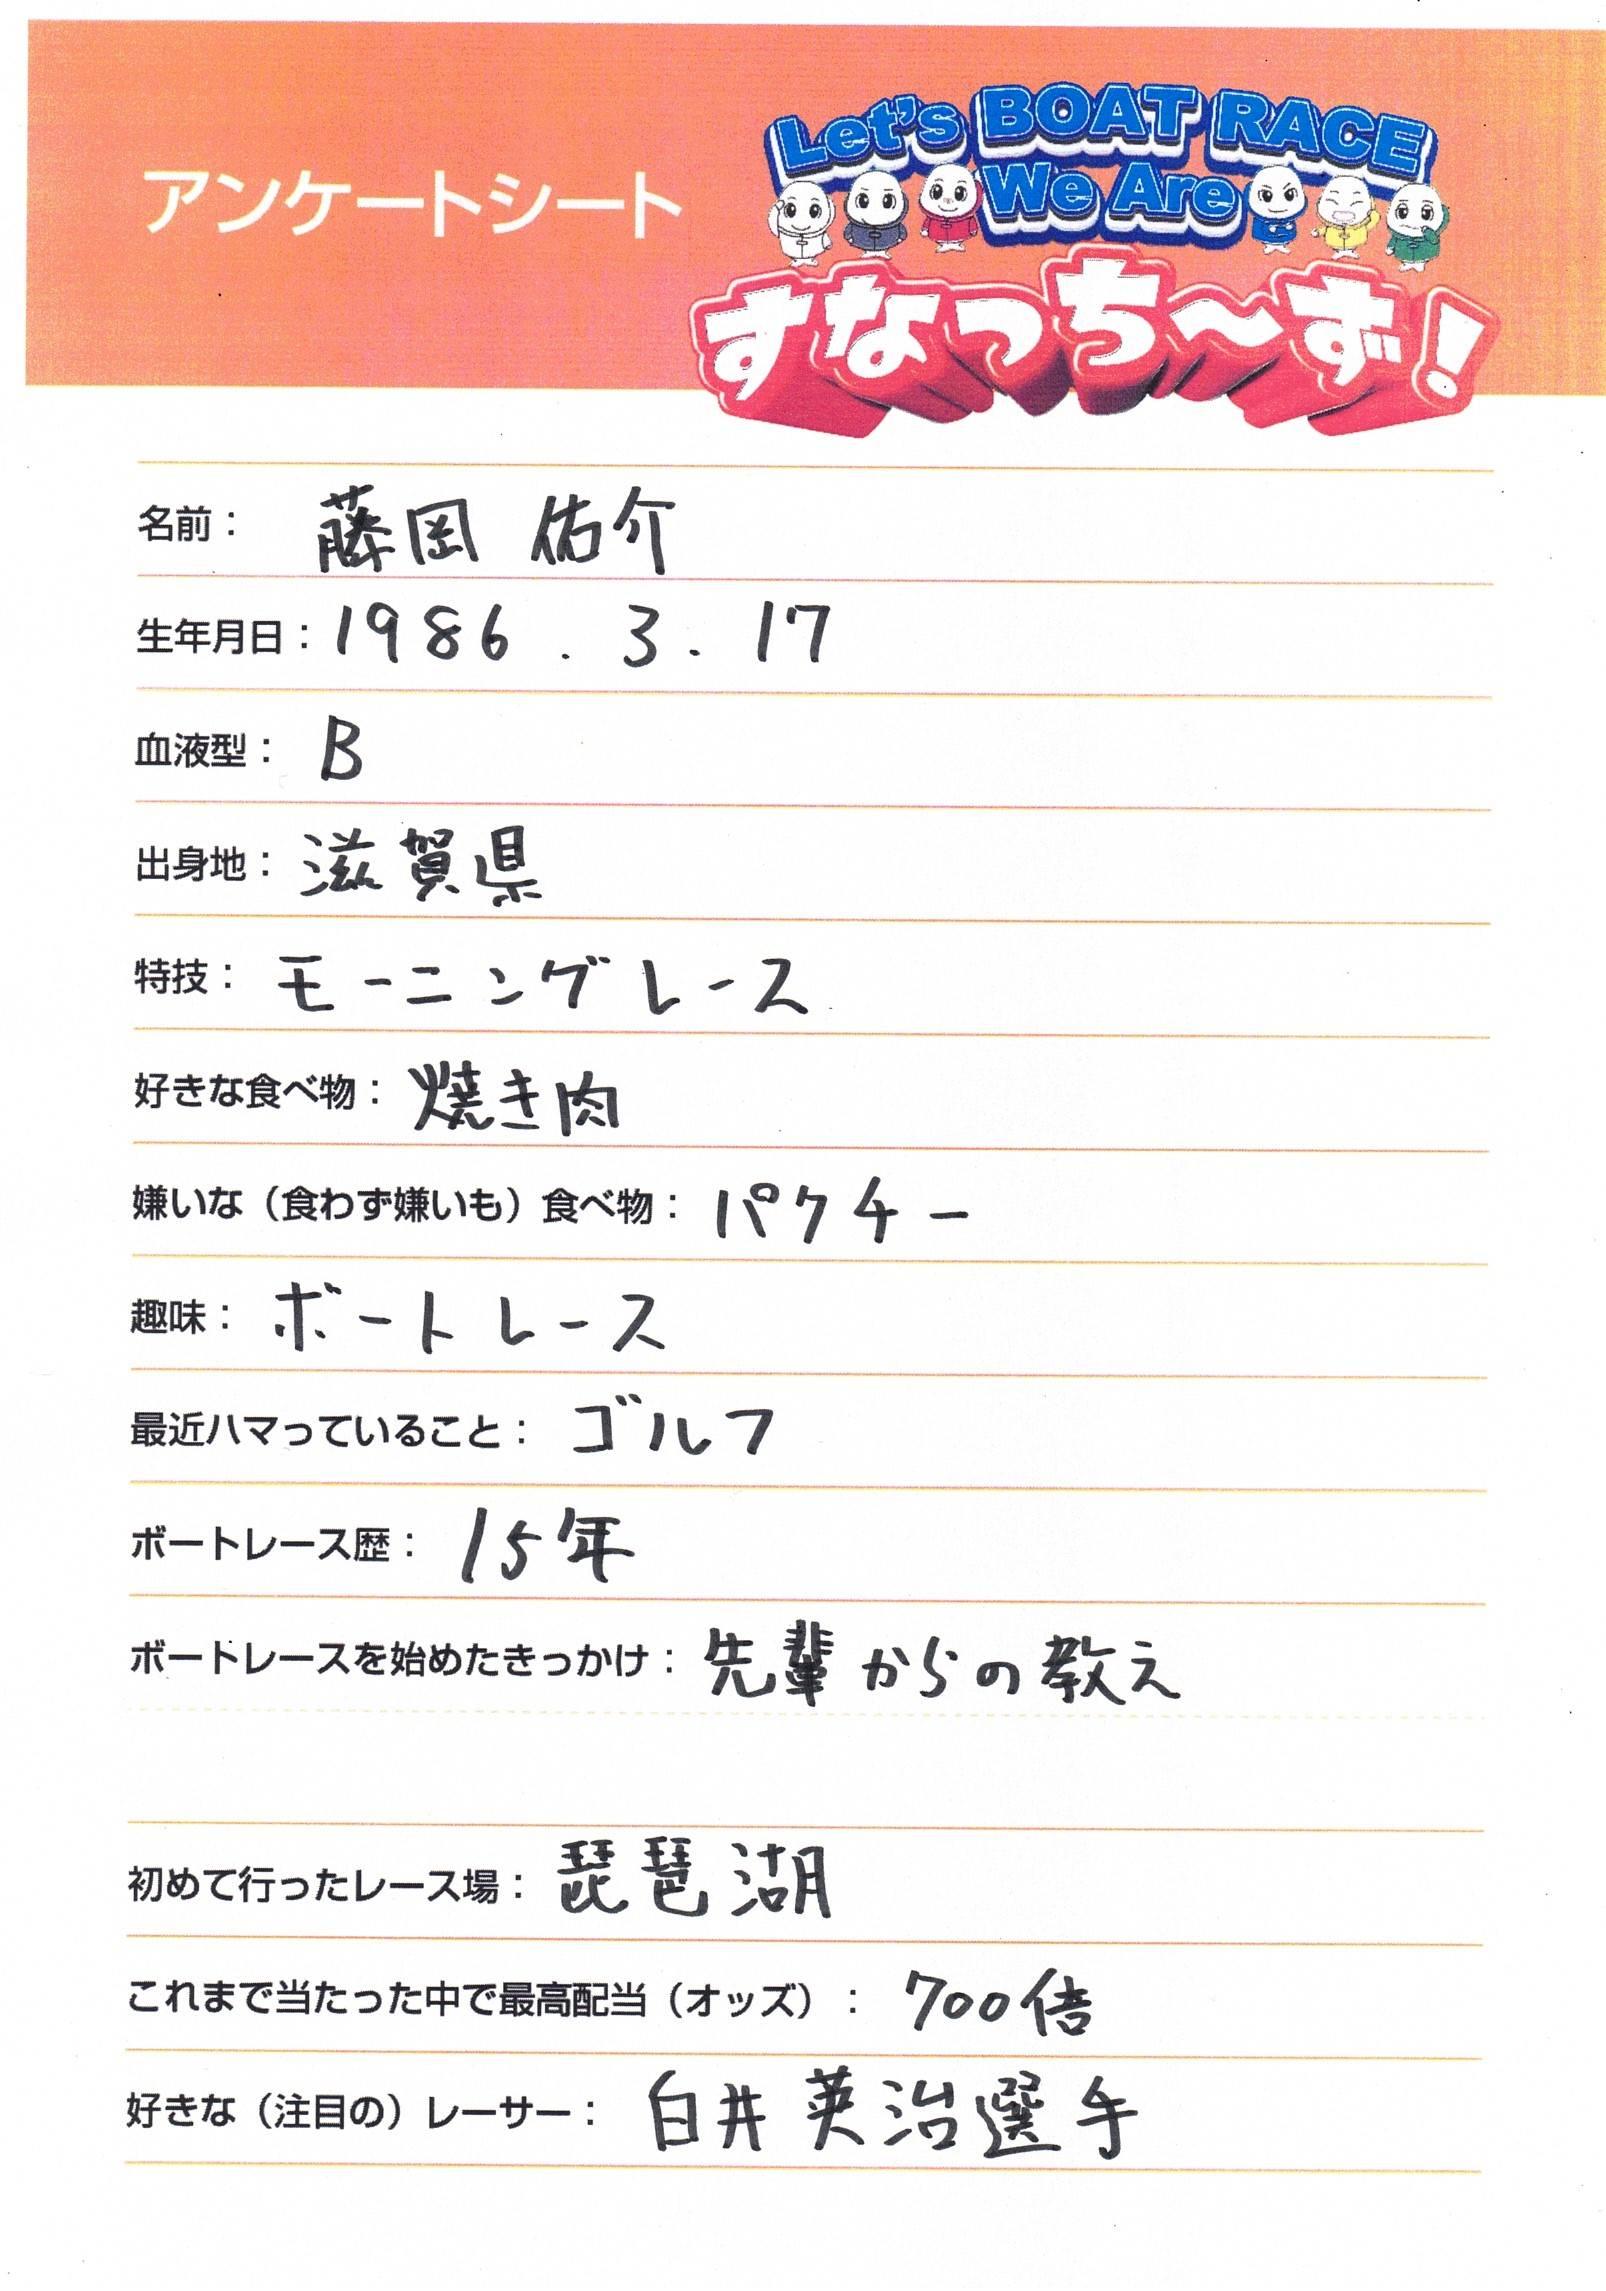 アンケートシート
Let's BOAT RACE
We Are
すなっち～ず！
名前： 藤岡 佑介
生年月日：1986．3．17
血液型： B
出身地： 滋賀県
特技： モーニングレース
好きな食べ物： 焼き肉
嫌いな（食わず嫌いも）食べ物： パクチー
趣味： ボートレース
最近ハマっていること： ゴルフ
ボートレース歴： 15年
ボートレースを始めたきっかけ： 先輩からの教え
初めて行ったレース場： 琵琶湖
これまで当たった中で最高配当（オッズ）： 700倍
好きな（注目の）レーサー： 白井英治選手